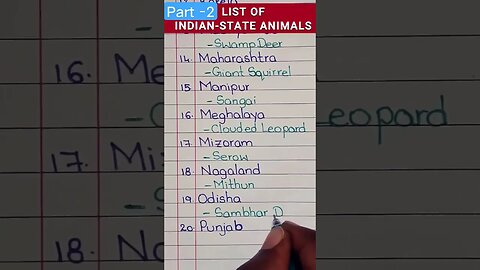 Part -2 LIST OF
INDIAN-STATE ANIMALS
- Swamp Deer
14. Maharashtra
- Giant Squirrel
15. Manipur
- Sangai
16. Meghalaya
- Clouded Leopard
17. Mizoram
- Serow
18. Nagaland
- Mithun
19. Odisha
- Sambhar D
20. Punjab
16. Me
- C
17. Mi
18. Na
eopard